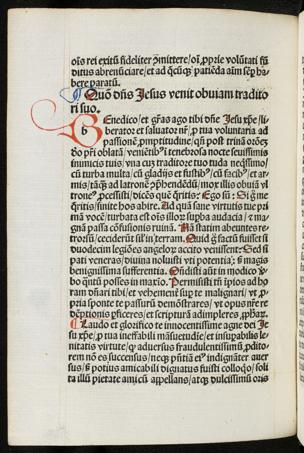 oīs rei exitū fideliter ꝯmittere / oī ꝓprie volūtati fū
ditus abrenūciare / et ad q̄cūqꝫ patiēda aīm sēꝑ ha
bere paratū.
Quō dn̄s Jesus venit obuiam tradito
ri suo.
Benedico et gr̄as ago tibi dn̄e Jesu xp̄e / li-
berator et saluator nr̄ / ꝓ tua voluntaria ad
passionē ꝓmptitudine / qn̄ post trinā oroēꝫ
deo pr̄i oblatā / veniētibꝰ i tenebrosa nocte seuissimis
inimicis tuis / vna cuꝫ traditore tuo iuda neq̄ssimo /
cū turba multa / cū gladijs et fustibꝰ / cū facibꝰ / et ar-
mis / tāqꝫ ad latronē ꝯp̄hendēdū / mox illis obuiā vl
troneꝰ ꝓcessisti / dicēs quē q̄ritis: Ego sū: Si g̊ me
q̄ritis / sinite hos abire. Ad quā sane virtutis tue pri
mā vocē / turbata est oīs illoꝝ supba audacia / ⁊ ma-
gnā passa cōfusionis ruinā. Nā statim abeuntes re-
trorsū / ceciderūt sil̄ in terram. Quid g̊ factū fuisset si
duodecim legiōes angeloꝝ accito venissent: Sed si
pati veneras / diuina noluisti vti potentia: s̄ magis
benignissima sufferentia. Ondisti aūt in modico ꝟ-
bo qn̄tū posses in maxīo. Permisisti tn̄ ipīos ad ho
ram dn̄ari tibi / et vehemēti sup te malignari / vt ꝓ-
pria sponte te passurū demōstrares / vt opus nr̄e re
dēptionis ꝑficeres / et scripturā adimpleres / ꝓphaꝝ.
Laudo et glorifico te innocentissime agne dei Je
su xp̄e / ꝓ tua ineffabili māsuetudīe / et insupabilis le-
nitatis virtute / q̄ aduersus fraudulentissimū ꝓdito-
rem nō es succensus / necqꝫ p̄ntiā eiꝰ indignāter auer
sus / s̄ potius amicabili dignatus fuisti colloq̊o / soli-
ta illū pietate amicū appellans / atqꝫ dulcissimū oris